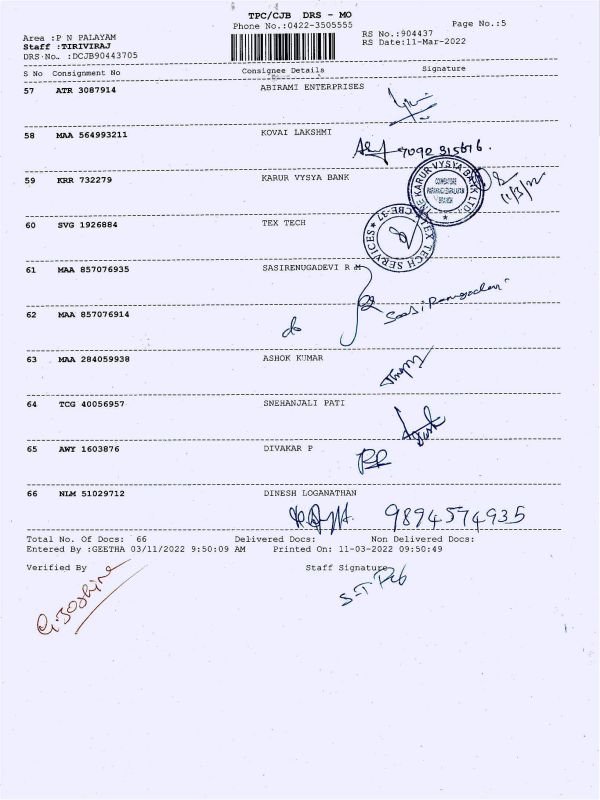 TPC/CJB DRS - MO
Phone No.:0422-3505555 Page No.:5
Area :P N PALAYAM RS No.:904437
Staff :TIRIVIRAJ RS Date:11-Mar-2022
DRS No. :DCJB90443705
S No Consignment No Consignee Details Signature
57 ATR 3087914 ABIRAMI ENTERPRISES
58 MAA 564993211 KOVAI LAKSHMI
9092 315616.
59 KRR 732279 KARUR VYSYA BANK
THE KARUR VYSYA BANK LTD
COIMBATORE
BRANCH
11/3/22
60 SVG 1926884 TEX TECH
TEX TECH SERVICES CBE-37
61 MAA 857076935 SASIRENUGADEVI R M
62 MAA 857076914
do
63 MAA 284059938 ASHOK KUMAR
64 TCG 40056957 SNEHANJALI PATI
65 AWY 1603876 DIVAKAR P
66 NLM 51029712 DINESH LOGANATHAN
9894574935
Total No. Of Docs: 66 Delivered Docs: Non Delivered Docs:
Entered By :GEETHA 03/11/2022 9:50:09 AM Printed On: 11-03-2022 09:50:49
Verified By Staff Signature